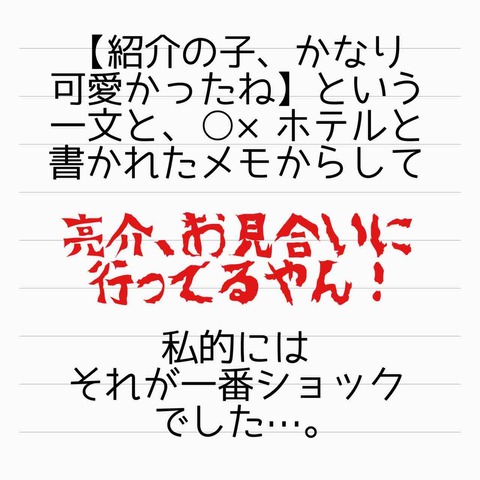 【紹介の子、かなり
可愛かったね】という
一文と、○× ホテルと
書かれたメモからして
亮介、お見合いに
行ってるやん！
私的には
それが一番ショック
でした…。